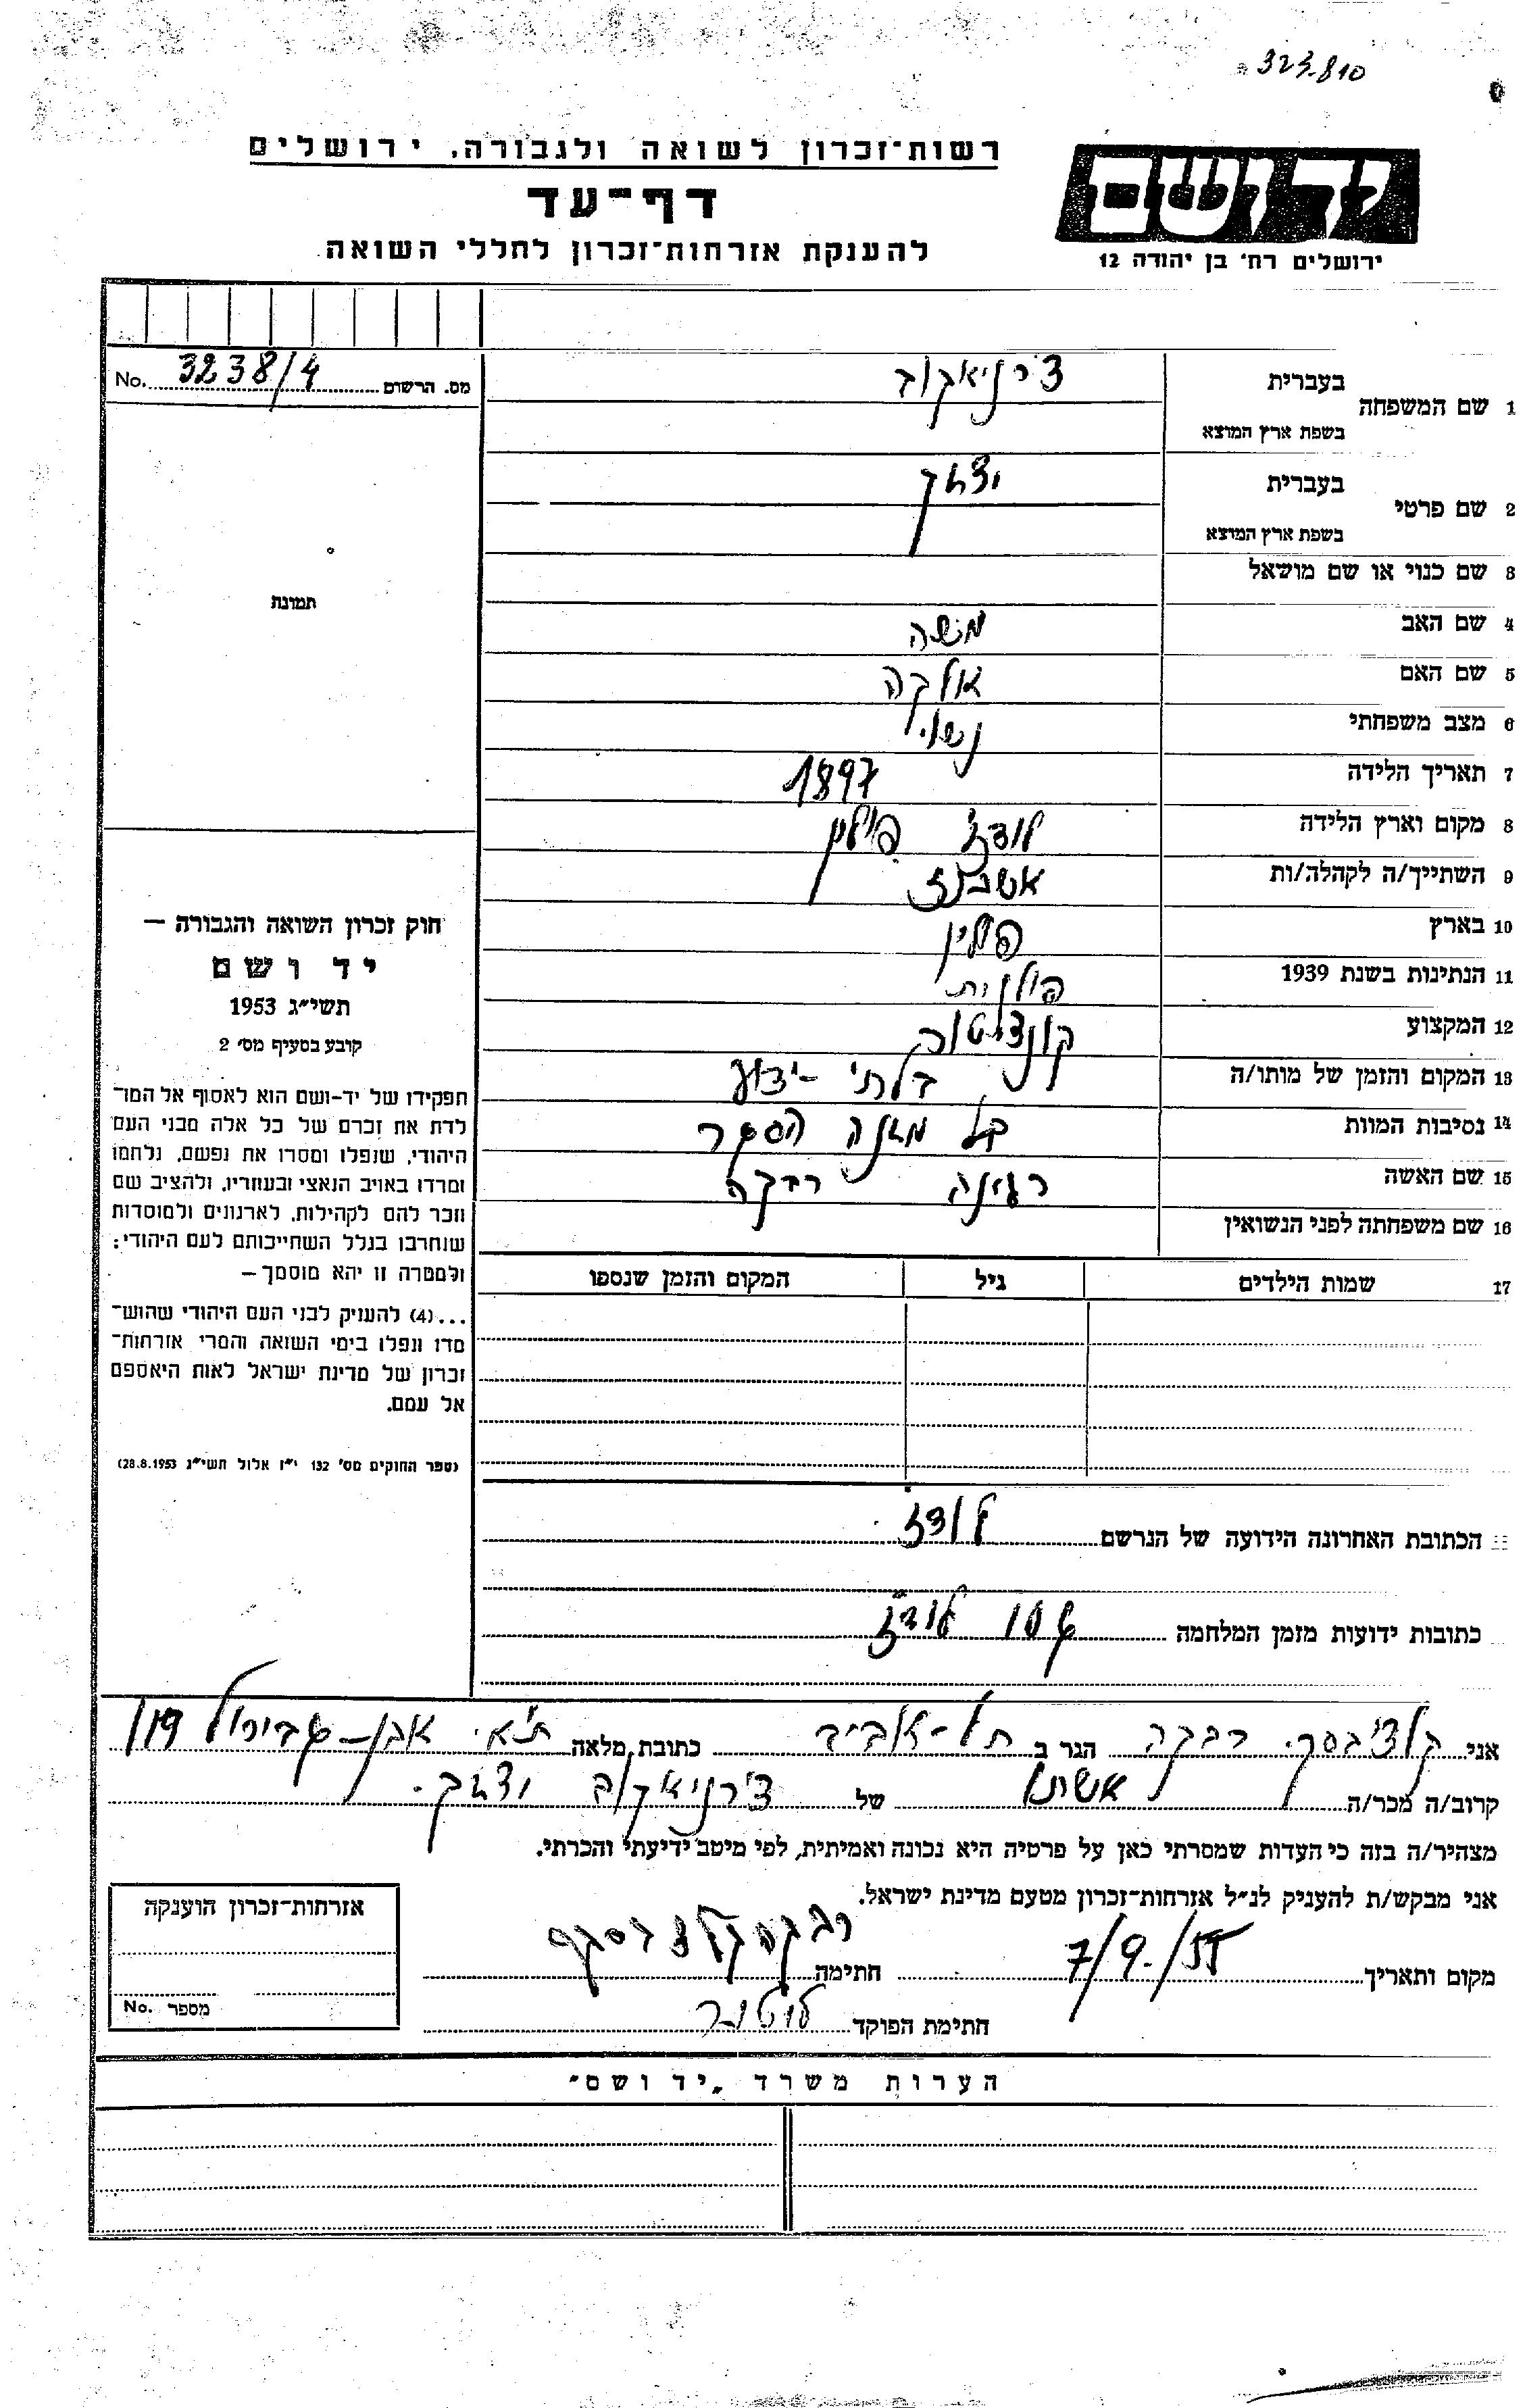 323.810
רשות־זכרון לשואה ולגבורה, ירושלים
דף־עד
להענקת אזרחות־זכרון לחללי השואה
יד ושם
ירושלים רח' בן יהודה 12
No. 3238/4 מס. הרשום
1 שם המשפחה בעברית צ'רניאקוב
בשפת ארץ המוצא
2 שם פרטי בעברית יצחק
בשפת ארץ המוצא
3 שם כנוי או שם מושאל
4 שם האב משה
5 שם האם אלקה
6 מצב משפחתי נשוי
7 תאריך הלידה 1897
8 מקום וארץ הלידה לודז' פולין
9 השתייך/ה לקהלה/ות אשכנז
10 בארץ פולין
11 הנתינות בשנת 1939 פולנית
12 המקצוע
13 המקום והזמן של מותו/ה בלתי-ידוע
14 נסיבות המוות
15 שם האשה רגינה רבקה
16 שם משפחתה לפני הנשואין
17 שמות הילדים גיל המקום והזמן שנספו
תמונת
חוק זכרון השואה והגבורה —
יד ושם
תשי״ג 1953
קובע בסעיף מס' 2
תפקידו של יד-ושם הוא לאסוף אל המו־
לדת את זכרם של כל אלה מבני העם
היהודי, שנפלו ומסרו את נפשם, נלחמו
ומרדו באויב הנאצי ובעוזריו, ולהציב שם
וזכר להם לקהילות, לארגונים ולמוסדות
שנחרבו בגלל השתייכותם לעם היהודי;
ולמטרה זו יהא מוסמך —
...(4) להעניק לבני העם היהודי שהוש־
מדו ונפלו בימי השואה והמרי אזרחות־
זכרון של מדינת ישראל לאות היאספם
אל עמם.
(ספר החוקים מס' 132 י״ז אלול תשי״ג 28.8.1953)
הכתובת האחרונה הידועה של הנרשם לודז
כתובות ידועות מזמן המלחמה גטו לודז
אני רבקה הגר ב תל-אביב כתובת מלאה ת״א. אבן-גבירול 119
קרוב/ה מכר/ה אשתו של צ'רניאקוב יצחק.
מצהיר/ה בזה כי העדות שמסרתי כאן על פרטיה היא נכונה ואמיתית, לפי מיטב ידיעתי והכרתי.
אני מבקש/ת להעניק לנ״ל אזרחות־זכרון מטעם מדינת ישראל.
מקום ותאריך 7/9./55 חתימה רבקה
חתימת הפוקד
אזרחות־זכרון הוענקה
No. מספר
הערות משרד „יד ושם״